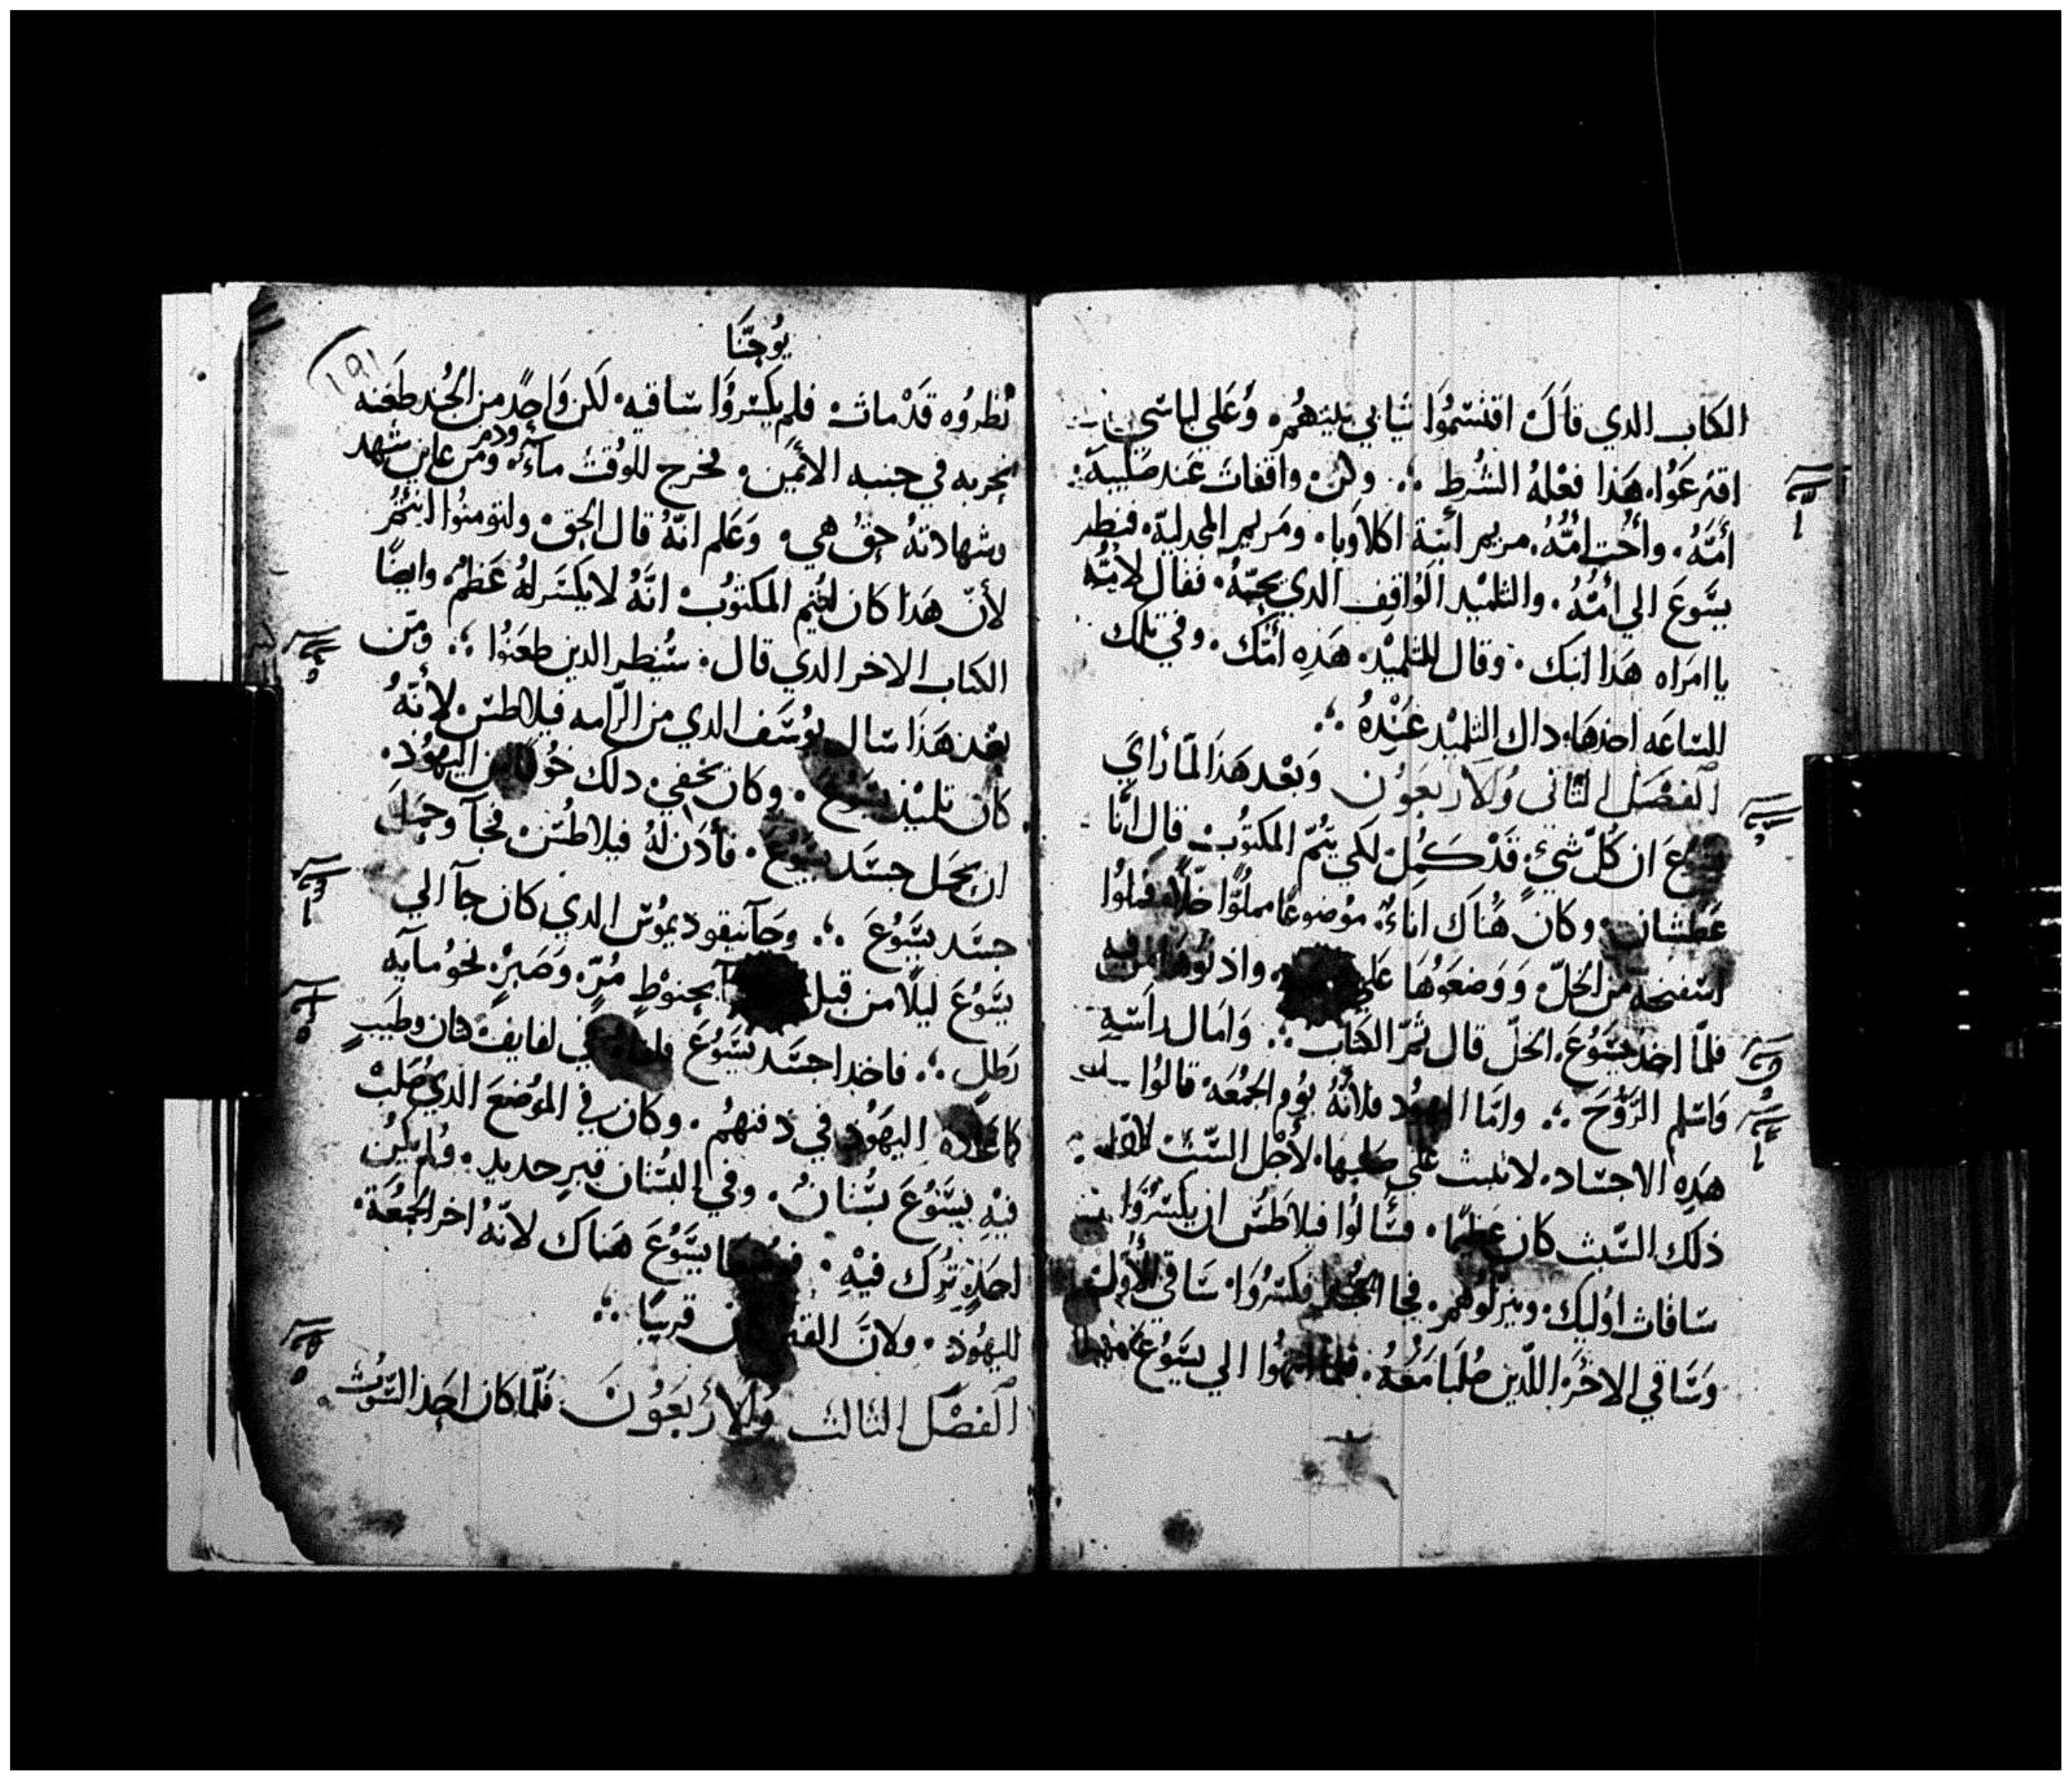 الكتاب الدي قال اقتسموا ثيابي بينهم. وعلي لباسي
اقترعوا. هذا فعله الشرط ؞ وكن واقفات عند صليبه
أمه. واخت امه. مريم ابنة اكلاوبا. ومريم المجدلية. فنظر
يسوع الي أمه. والتلميد الواقف الدي يحبه. فقال لامه
يا امراه هدا ابنك. وقال للتلميد. هده امك. وفي تلك
الساعه اخدها داك التلميد عنده ؞
الفصل التاني ولاربعون وبعد هدا لما رأي
ان كل شيء قد كمل لكي يتم المكتوب. قال انا
عطشان. وكان هناك اناء موضوعا مملوا خلا فملوا
اسفنجه من الخل ووضعوها علي وادنوها
فلما اخد يسوع الخل قال تم الكتاب ؞ وامال راسه
واسلم الروح ؞ واما اليهود فلانه يوم الجمعة قالوا
هده الاجساد. لا تبت علي صليبها. لأجل السبت لان
دلك السبت كان عظيما. فسألوا فيلاطس ان يكسروا
ساقات اوليك. وينزلوهم. فجا الجند فكسروا ساقي الأول
وساقي الاخر اللدين صلبا معه. فلما انتهوا الي يسوع
يوحنا
١٩١
نظروه قد مات. فلم يكسروا ساقيه. لكن واحد من الجند طعنه
بحربه في جنبه الأيمن. فخرج للوقت ماء ودم ومن عاين شهد
وشهادته حق هي. وعلم انه قال الحق. ولتومنوا انتم
لأن هدا كان ليتم المكتوب انه لا يكسر له عظم. وايضا
الكتاب الاخر الدي قال. سينظر الدين طعنوا ؞ ومن
بعد هدا سال يوسف الدي من الرامه فيلاطس لأنه
كان تلميد يسوع. وكان يخفي دلك خوفا من اليهود.
ان يحمل جسد يسوع. فأدن له فيلاطس فجآ وحمل
جسد يسوع ؞ وجآ نيقوديموس الدي كان جآ الي
يسوع ليلا من قبل بحنوط مر وصبر. نحو مايه
رطل ؞ فاخدا جسد يسوع في لفايف كتان وطيب
كما عاده اليهود في دفنهم. وكان في الموضع الدي صلب
فيه يسوع بستان. وفي البستان قبر جديد. ولم يكن
احد ترك فيه. يسوع هناك لانه اخر الجمعة
لليهود. ولان القبر كان قريبا ؞
الفصل التالت ولاربعون. فلما كان احد السبوت